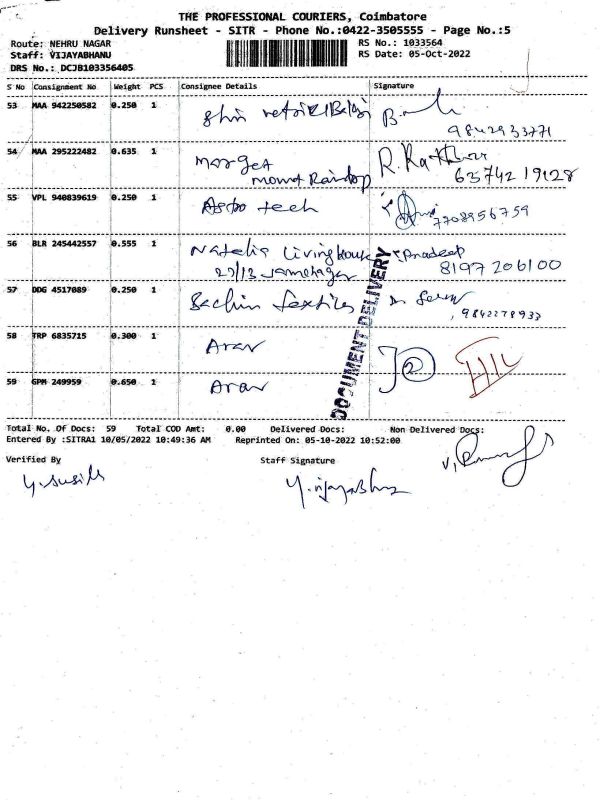 THE PROFESSIONAL COURIERS, Coimbatore
Delivery Runsheet - SITR - Phone No.:0422-3505555 - Page No.:5
Route: NEHRU NAGAR RS No.: 1033564
Staff: VIJAYABHANU RS Date: 05-Oct-2022
DRS No.: DCJB103356405
S No Consignment No Weight PCS Consignee Details Signature
53 MAA 942250582 0.250 1
54 MAA 295222482 0.635 1 R.
mount Raindop 63742 19128
55 VPL 940839619 0.250 1 Astro tech
7708956759
56 BLR 245442557 0.555 1 Natalia Living Pradeep
8197206100
57 DDG 4517089 0.250 1 Sachin Textiles
9842278933
DOCUMENT DELIVERY
58 TRP 6835715 0.300 1 Arav
2
59 GPM 249959 0.650 1 Arav
Total No. Of Docs: 59 Total COD Amt: 0.00 Delivered Docs: Non Delivered Docs:
Entered By :SITRA1 10/05/2022 10:49:36 AM Reprinted On: 05-10-2022 10:52:00
Verified By Staff Signature